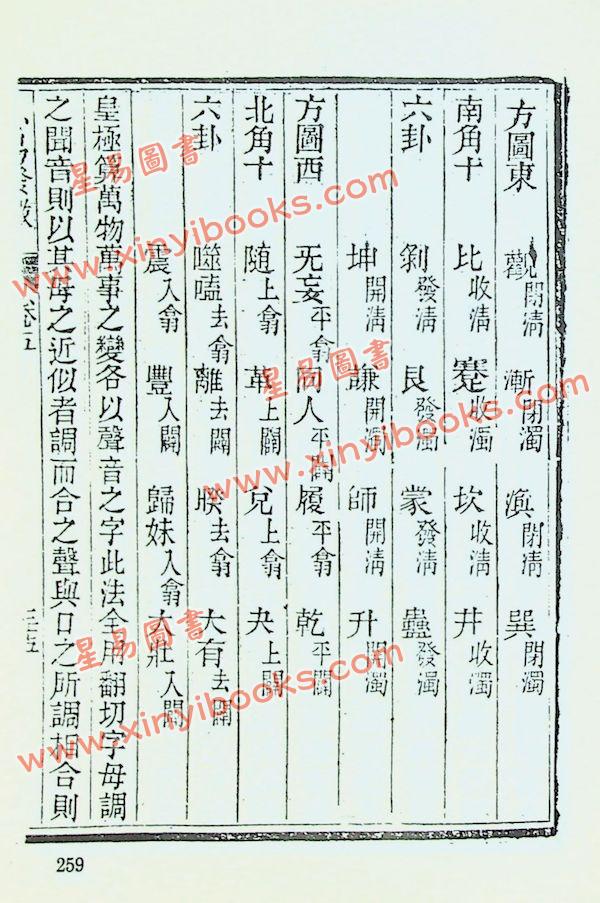 方圖東 觀閉清 漸閉濁 渙閉清 巽閉濁
南角十 比收清 蹇收濁 坎收清 井收濁
六卦 剝發清 艮發濁 蒙發清 蠱發濁
坤開清 謙開濁 師開清 升開濁
方圖西 无妄平翕 同人平闢 履平翕 乾平闢
北角十 随上翕 革上闢 兌上翕 夬上闢
六卦 噬嗑去翕 離去闢 睽去翕 大有去闢
震入翕 豐入闢 歸妹入翕 大壯入闢
皇極算萬物萬事之變各以聲音之字此法全用翻切字母調
之聞音則以其母之近似者調而合之聲與口之所調相合則
卷五
259
星易圖書
www.xinyibooks.com
星易圖書
www.xinyibooks.com
星易圖書
www.xinyibooks.com